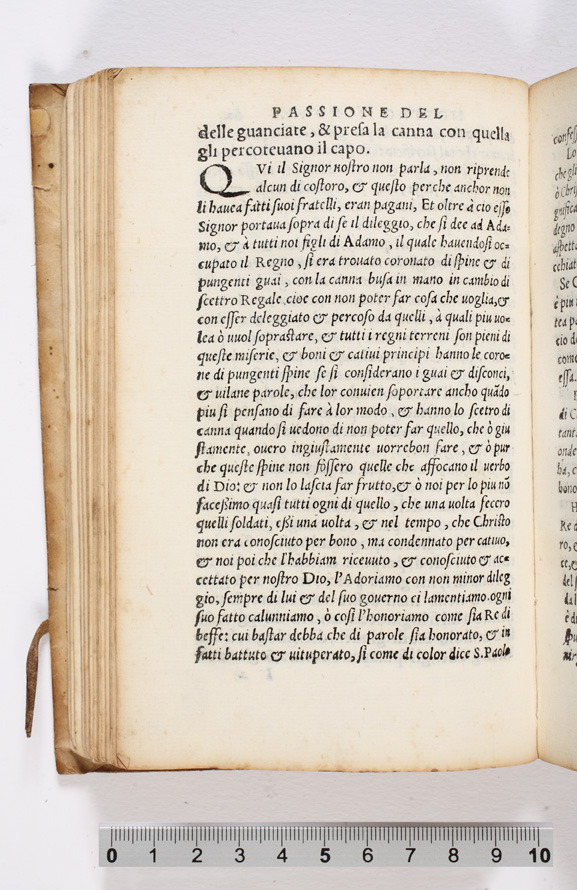 PASSIONE DEL
delle guanciate, & presa la canna con quella
gli percoteuano il capo.
QVi il Signor nostro non parla, non riprende
alcun di costoro, & questo perche anchor non
li hauea fatti suoi fratelli, eran pagani, Et oltre à cio esso
Signor portaua sopra di se il dileggio, che si dee ad Ada=
mo, & à tutti noi figli di Adamo, il quale hauendosi oc=
cupato il Regno, si era trouato coronato di spine & di
pungenti guai, con la canna busa in mano in cambio di
scettro Regale, cioe con non poter far cosa che uoglia, &
con esser deleggiato & percoso da quelli, à quali piu uo=
lea ò uuol soprastare, & tutti i regni terreni son pieni di
queste miserie, & boni & catiui principi hanno le coro=
ne di pungenti spine se si considerano i guai & disconci,
& uilane parole, che lor conuien soportare ancho quãdo
piu si pensano di fare à lor modo, & hanno lo scetro di
canna quando si uedono di non poter far quello, che ò giu
stamente, ouero ingiustamente uorrebon fare, & ò pur
che queste spine non fossero quelle che affocano il uerbo
di Dio: & non lo lascia far frutto, & ò noi per lo piu nõ
facessimo quasi tutti ogni di quello, che una uolta fecero
quelli soldati, essi una uolta, & nel tempo, che Christo
non era conosciuto per bono, ma condennato per catiuo,
& noi poi che l'habbiam riceuuto, & conosciuto & ac=
cettato per nostro Dio, l'Adoriamo con non minor dileg
gio, sempre di lui & del suo gouerno ci lamentiamo. ogni
suo fatto calunniamo, ò cosi l'honoriamo come sia Re di
beffe: cui bastar debba che di parole sia honorato, & in
fatti battuto & uituperato, si come di color dice S. Paolo
confess
Lo
che gli
ò Chri
gnifica
degno
aspetta
cchiat
Se C
è piu
tea p
cio d
come
essa.
di C
tant
onde
ba, c
bono
H
Re d
ro, e
ce, &
del s
da l
è di
0 1 2 3 4 5 6 7 8 9 10